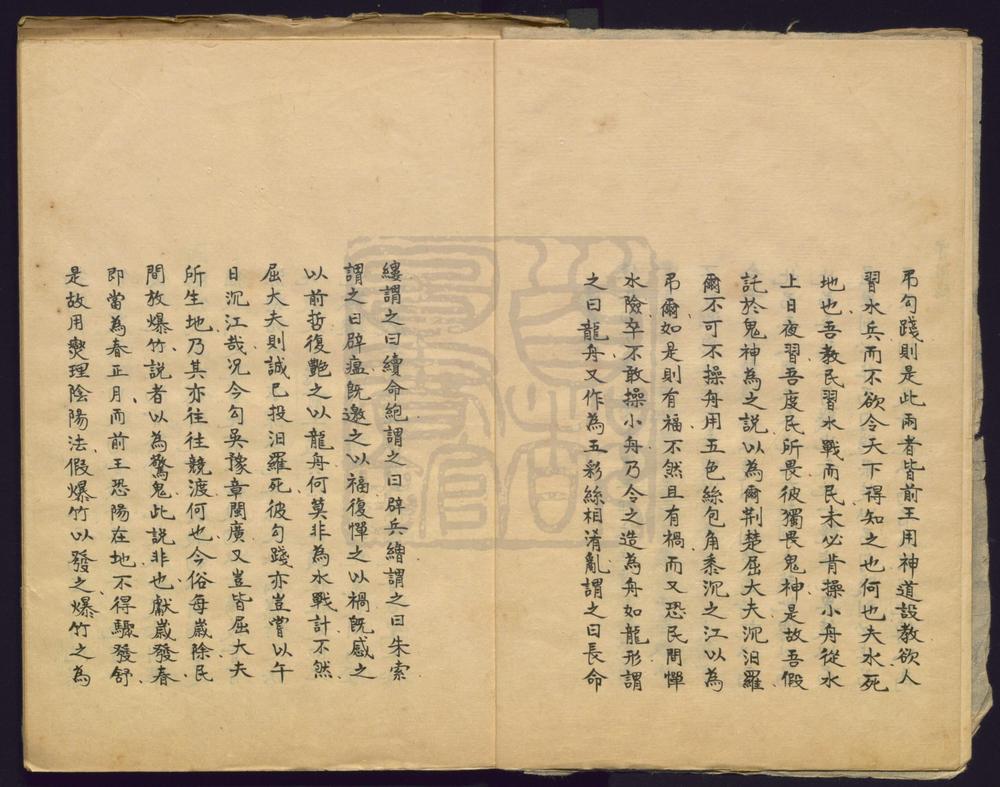 弔勾踐則是此兩者皆前王用神道設教欲人
習水兵而不欲令天下得知之也何也夫水死
地也吾教民習水戰而民未必肯操小舟從水
上日夜習吾度民所畏彼獨畏鬼神是故吾假
託於鬼神為之說以為爾荆楚屈大夫沉汨羅
爾不可不操舟用五色絲包角黍沉之江以為
弔爾如是則有福不然且有禍而又恐民間憚
水險卒不敢操小舟乃令之造為舟如龍形謂
之曰龍舟又作為五彩絲相淆亂謂之曰長命
縷謂之曰續命絶謂之曰辟兵繒謂之曰朱索
謂之曰辟瘟既邀之以福復憚之以禍既感之
以前哲復艷之以龍舟何莫非為水戰計不然
屈大夫則誠已投汨羅死彼勾踐亦豈嘗以午
日沉江哉况今勾吳豫章閩廣又豈皆屈大夫
所生地乃其亦往往競渡何也今俗每歲除民
間放爆竹說者以為驚鬼此說非也獻歲發春
即當為春正月而前王恐陽在地不得驟發舒
是故用爕理陰陽法假爆竹以發之爆竹之為